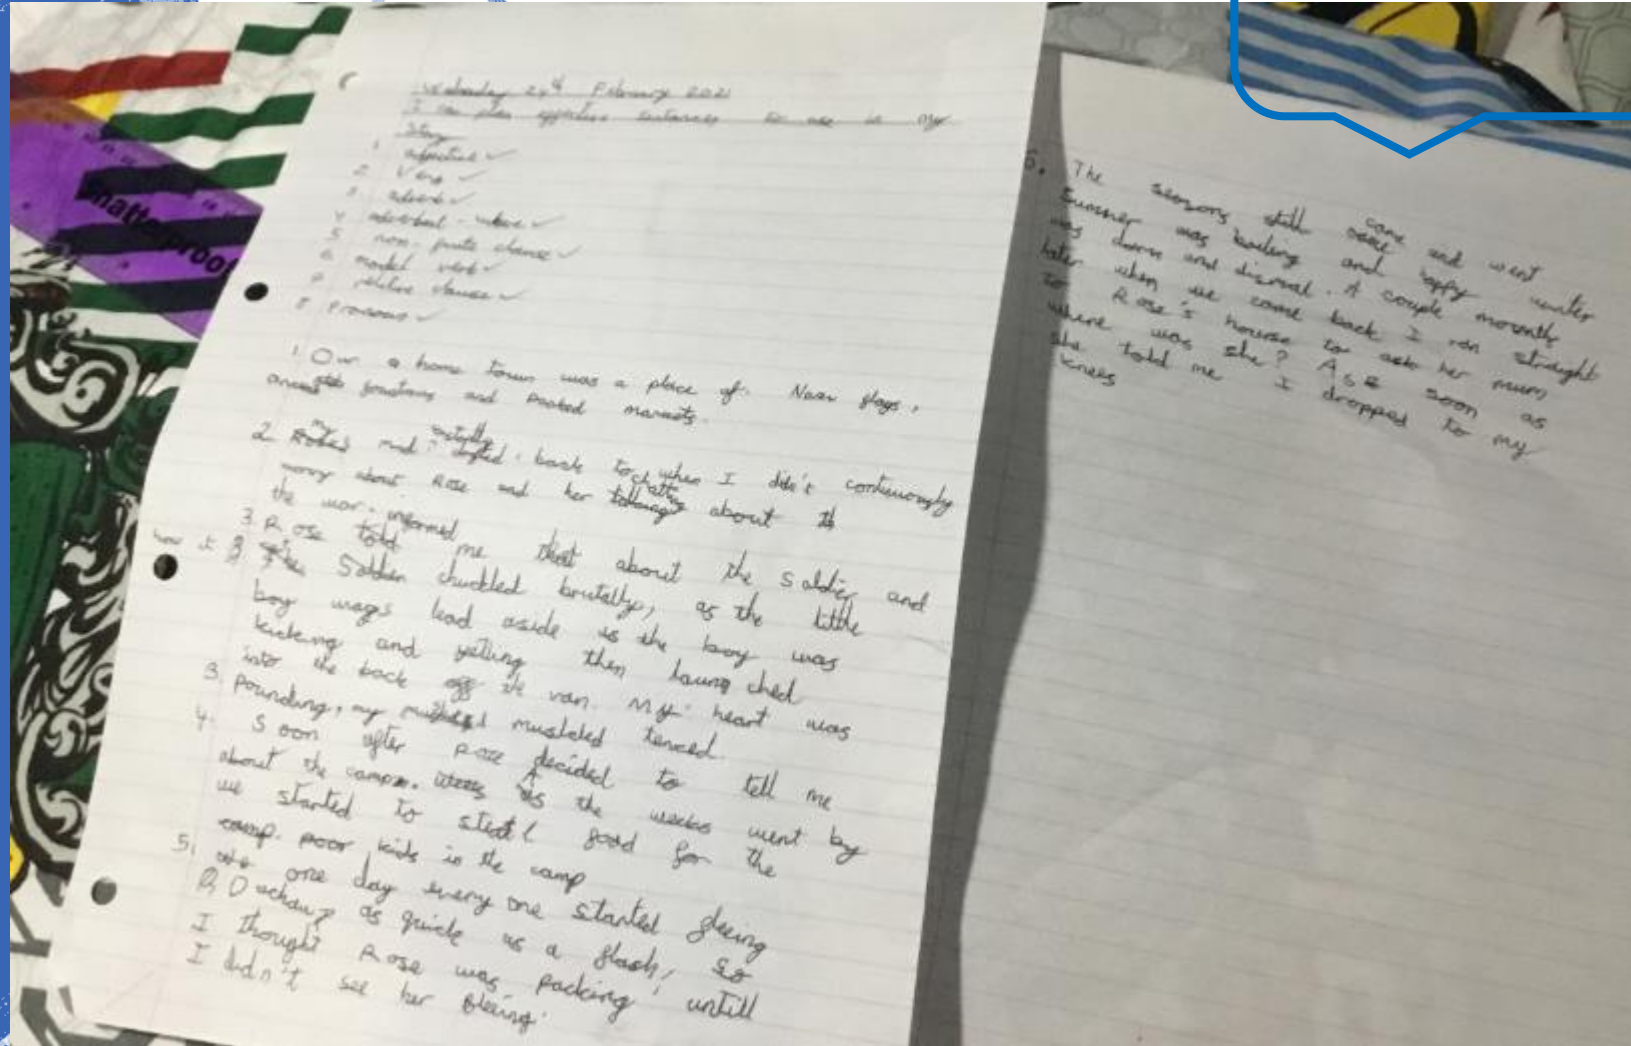 Shatterproof
Wednesday 24th February 2021
I can plan effective sentences to use in my
Story
1 adjective ✓
2. Verb ✓
3. adverb ✓
4 adverbial - where ✓
5 ✓
6 model verb ✓
7 relative clause ✓
8 Pronouns ✓
1. Our a home town was a place of. Nazi flags,
fountains and packed markets.
2. my mind back to when I didn't continuously
worry about Rose and her chatting about th
the war.
3. Rose informed me that about the Soldier and
how it Soldier chuckled brutally, as the little
boy wags lead aside is the boy was
kicking and yelling then launched
into the back off the van. My heart was
3. pounding, my muskled tenced.
4. Soon after Rose decided to tell me
about the camp. As the weeks went by
we started to steal food for the
camp. poor kids in the camp
5. one day every one started fleeing
as quick as a flash, so
I thought Rose was packing, untill
I didn't see her fleeing.
6. The seasons still came and went
Summer was boiling and happy winter
was down and dismal. A couple mounths
later when we came back I ran straight
to Rose's hourse to ask her mum
where was she? Ase soon as
she told me I dropped to my
knees